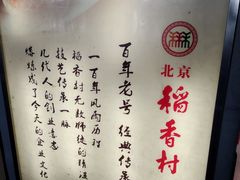 北京
稻香村
百年老号 经典传承
一百年风雨历程
稻香村无数师徒的
技艺传承一脉
几代人的创业意志
炼成了今天的企业文化